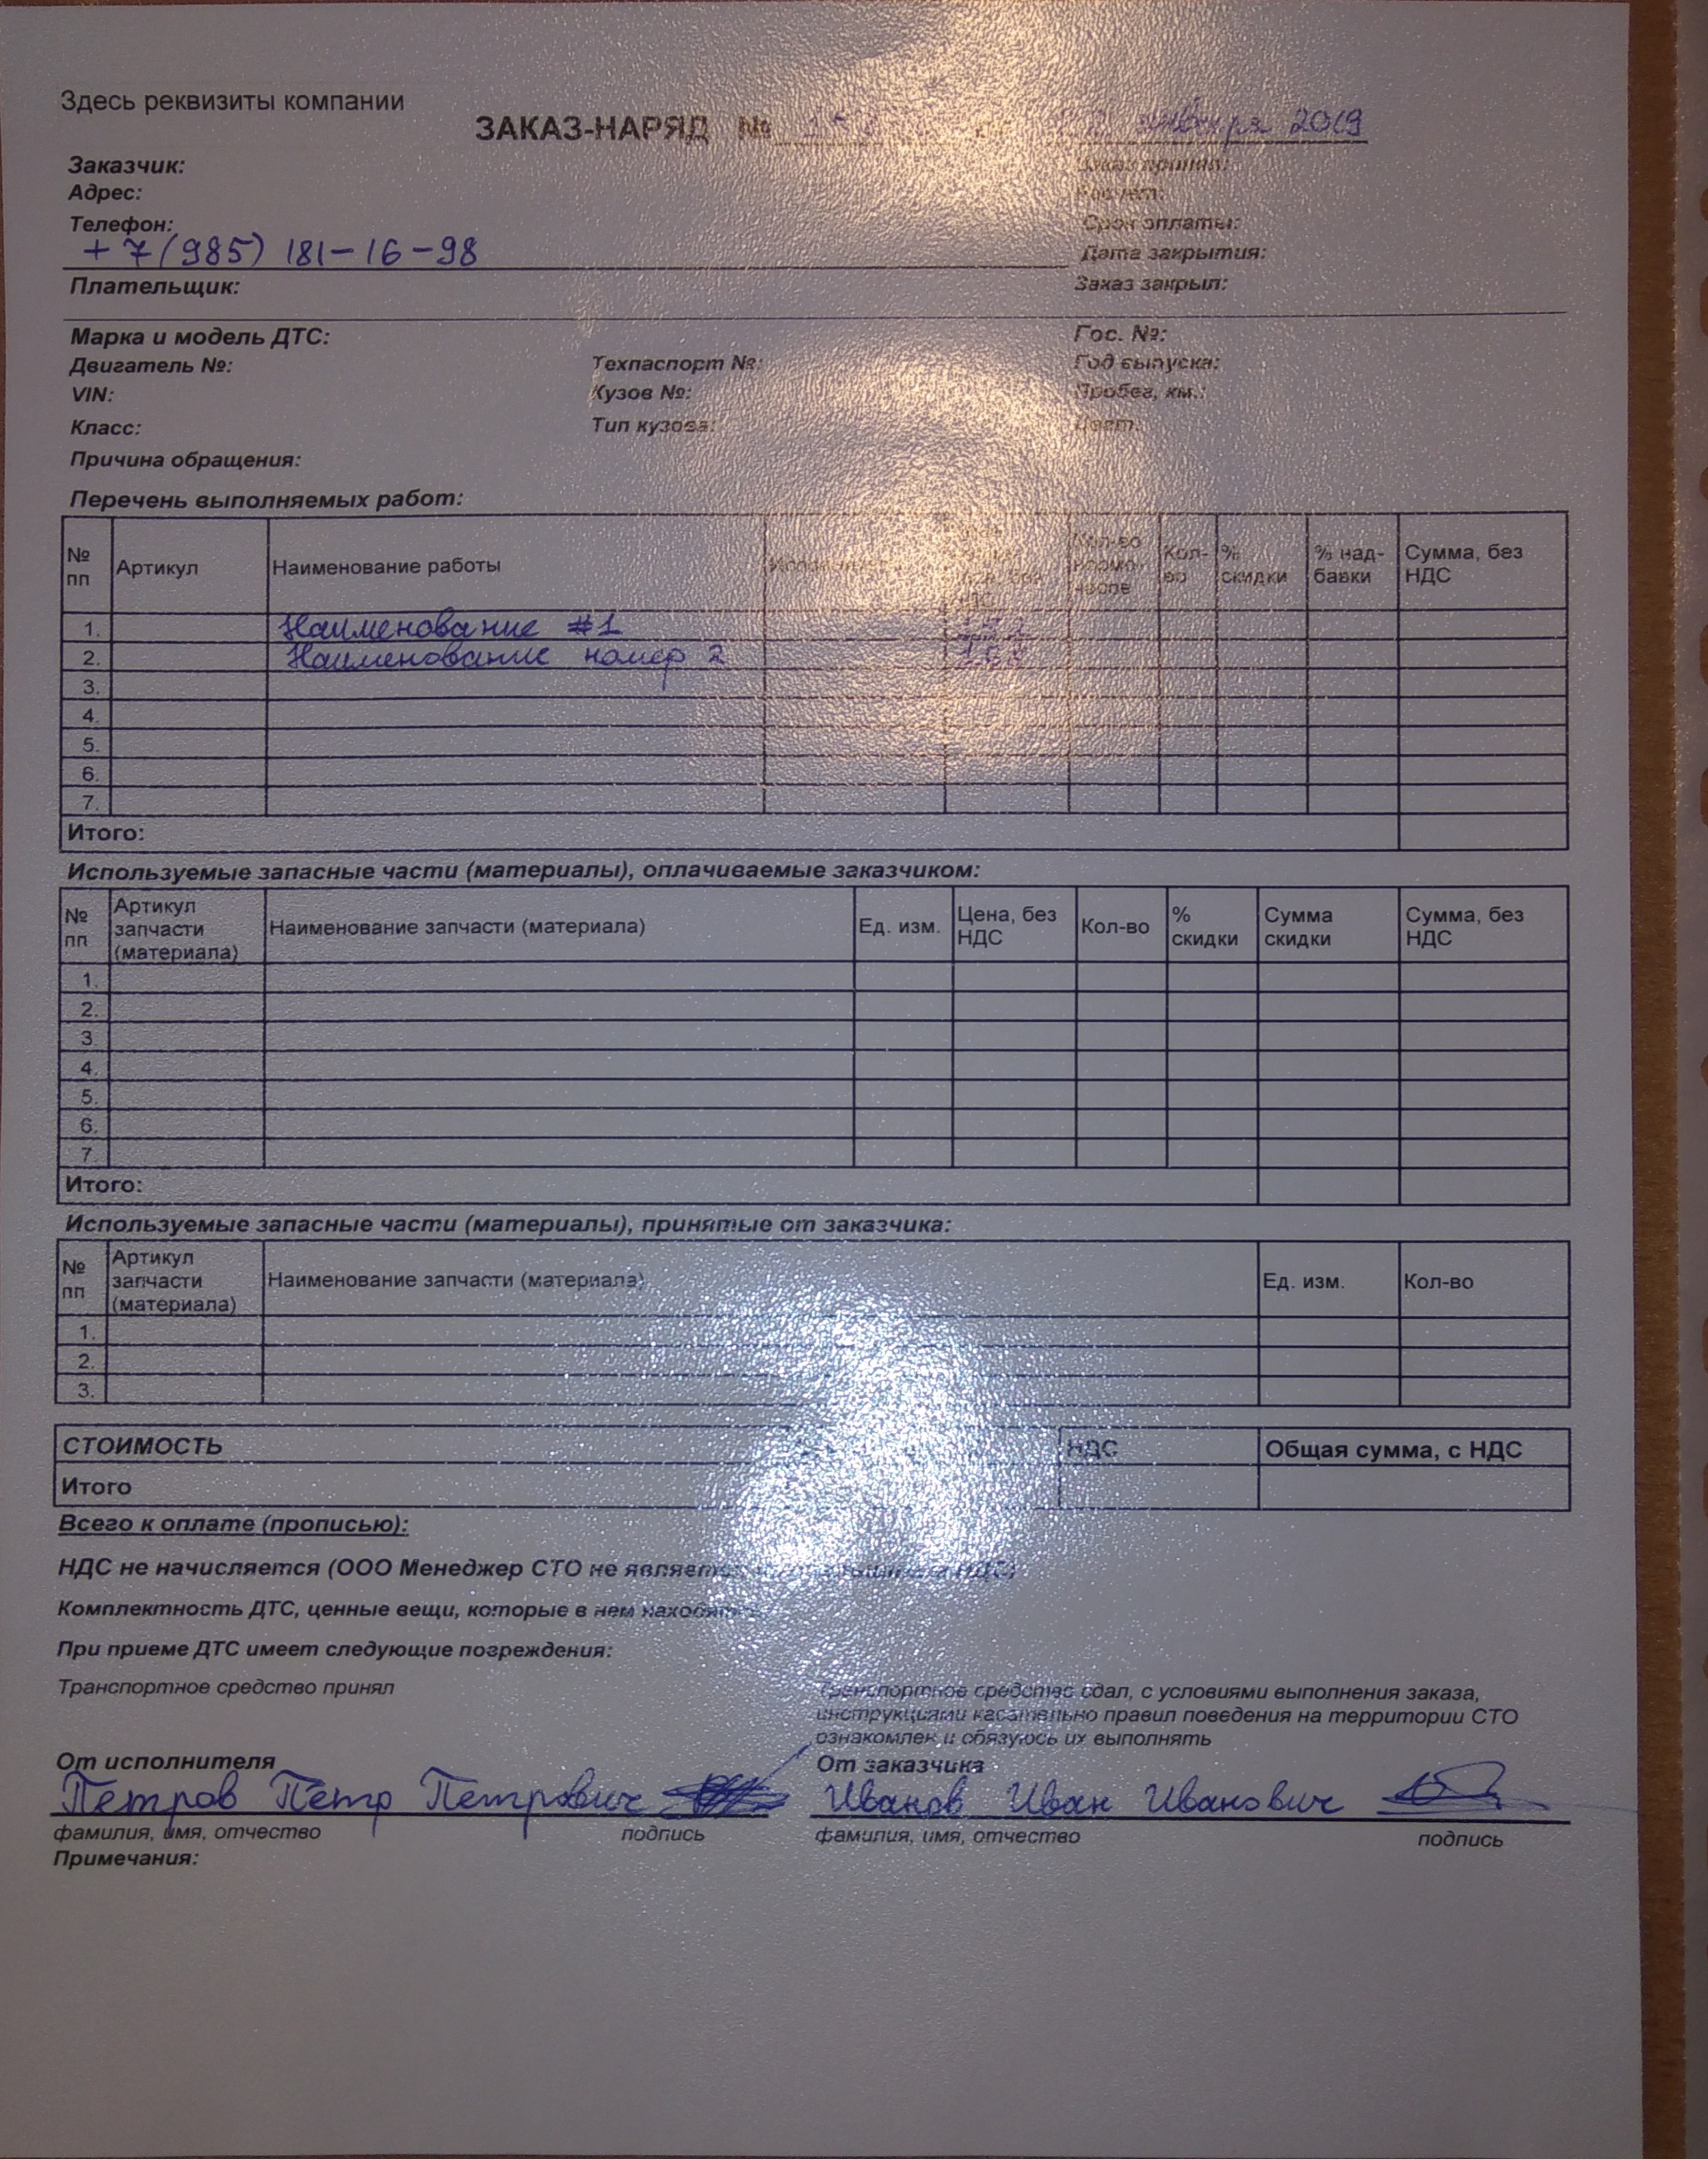 Здесь реквизиты компании
ЗАКАЗ-НАРЯД № января 2019
Заказчик:
Адрес:
Телефон: Срок оплаты:
+7(985) 181-16-98 Дата закрытия:
Плательщик: Заказ закрыл:
Марка и модель ДТС: Гос. №:
Двигатель №: Техпаспорт №: Год выпуска:
VIN: Кузов №: Пробег, км.:
Класс: Тип кузова: Цвет:
Причина обращения:
Перечень выполняемых работ:
№ пп Артикул Наименование работы Кол-во % скидки % над-бавки Сумма, без НДС
1. Наименование #1
2. Наименование номер 2
3.
4.
5.
6.
7.
Итого:
Используемые запасные части (материалы), оплачиваемые заказчиком:
№ пп Артикул запчасти (материала) Наименование запчасти (материала) Ед. изм. Цена, без НДС Кол-во % скидки Сумма скидки Сумма, без НДС
1.
2.
3.
4.
5.
6.
7.
Итого:
Используемые запасные части (материалы), принятые от заказчика:
№ пп Артикул запчасти (материала) Наименование запчасти (материала) Ед. изм. Кол-во
1.
2.
3.
СТОИМОСТЬ НДС Общая сумма, с НДС
Итого
Всего к оплате (прописью):
НДС не начисляется (ООО Менеджер СТО не НДС)
Комплектность ДТС, ценные вещи, которые в нем
При приеме ДТС имеет следующие погреждения:
Транспортное средство принял
Транспортное средство сдал, с условиями выполнения заказа,
инструкциями касательно правил поведения на территории СТО
ознакомлен и обязуюсь их выполнять
От исполнителя От заказчика
Петров Петр Петрович Иванов Иван Иванович
фамилия, имя, отчество подпись фамилия, имя, отчество подпись
Примечания: